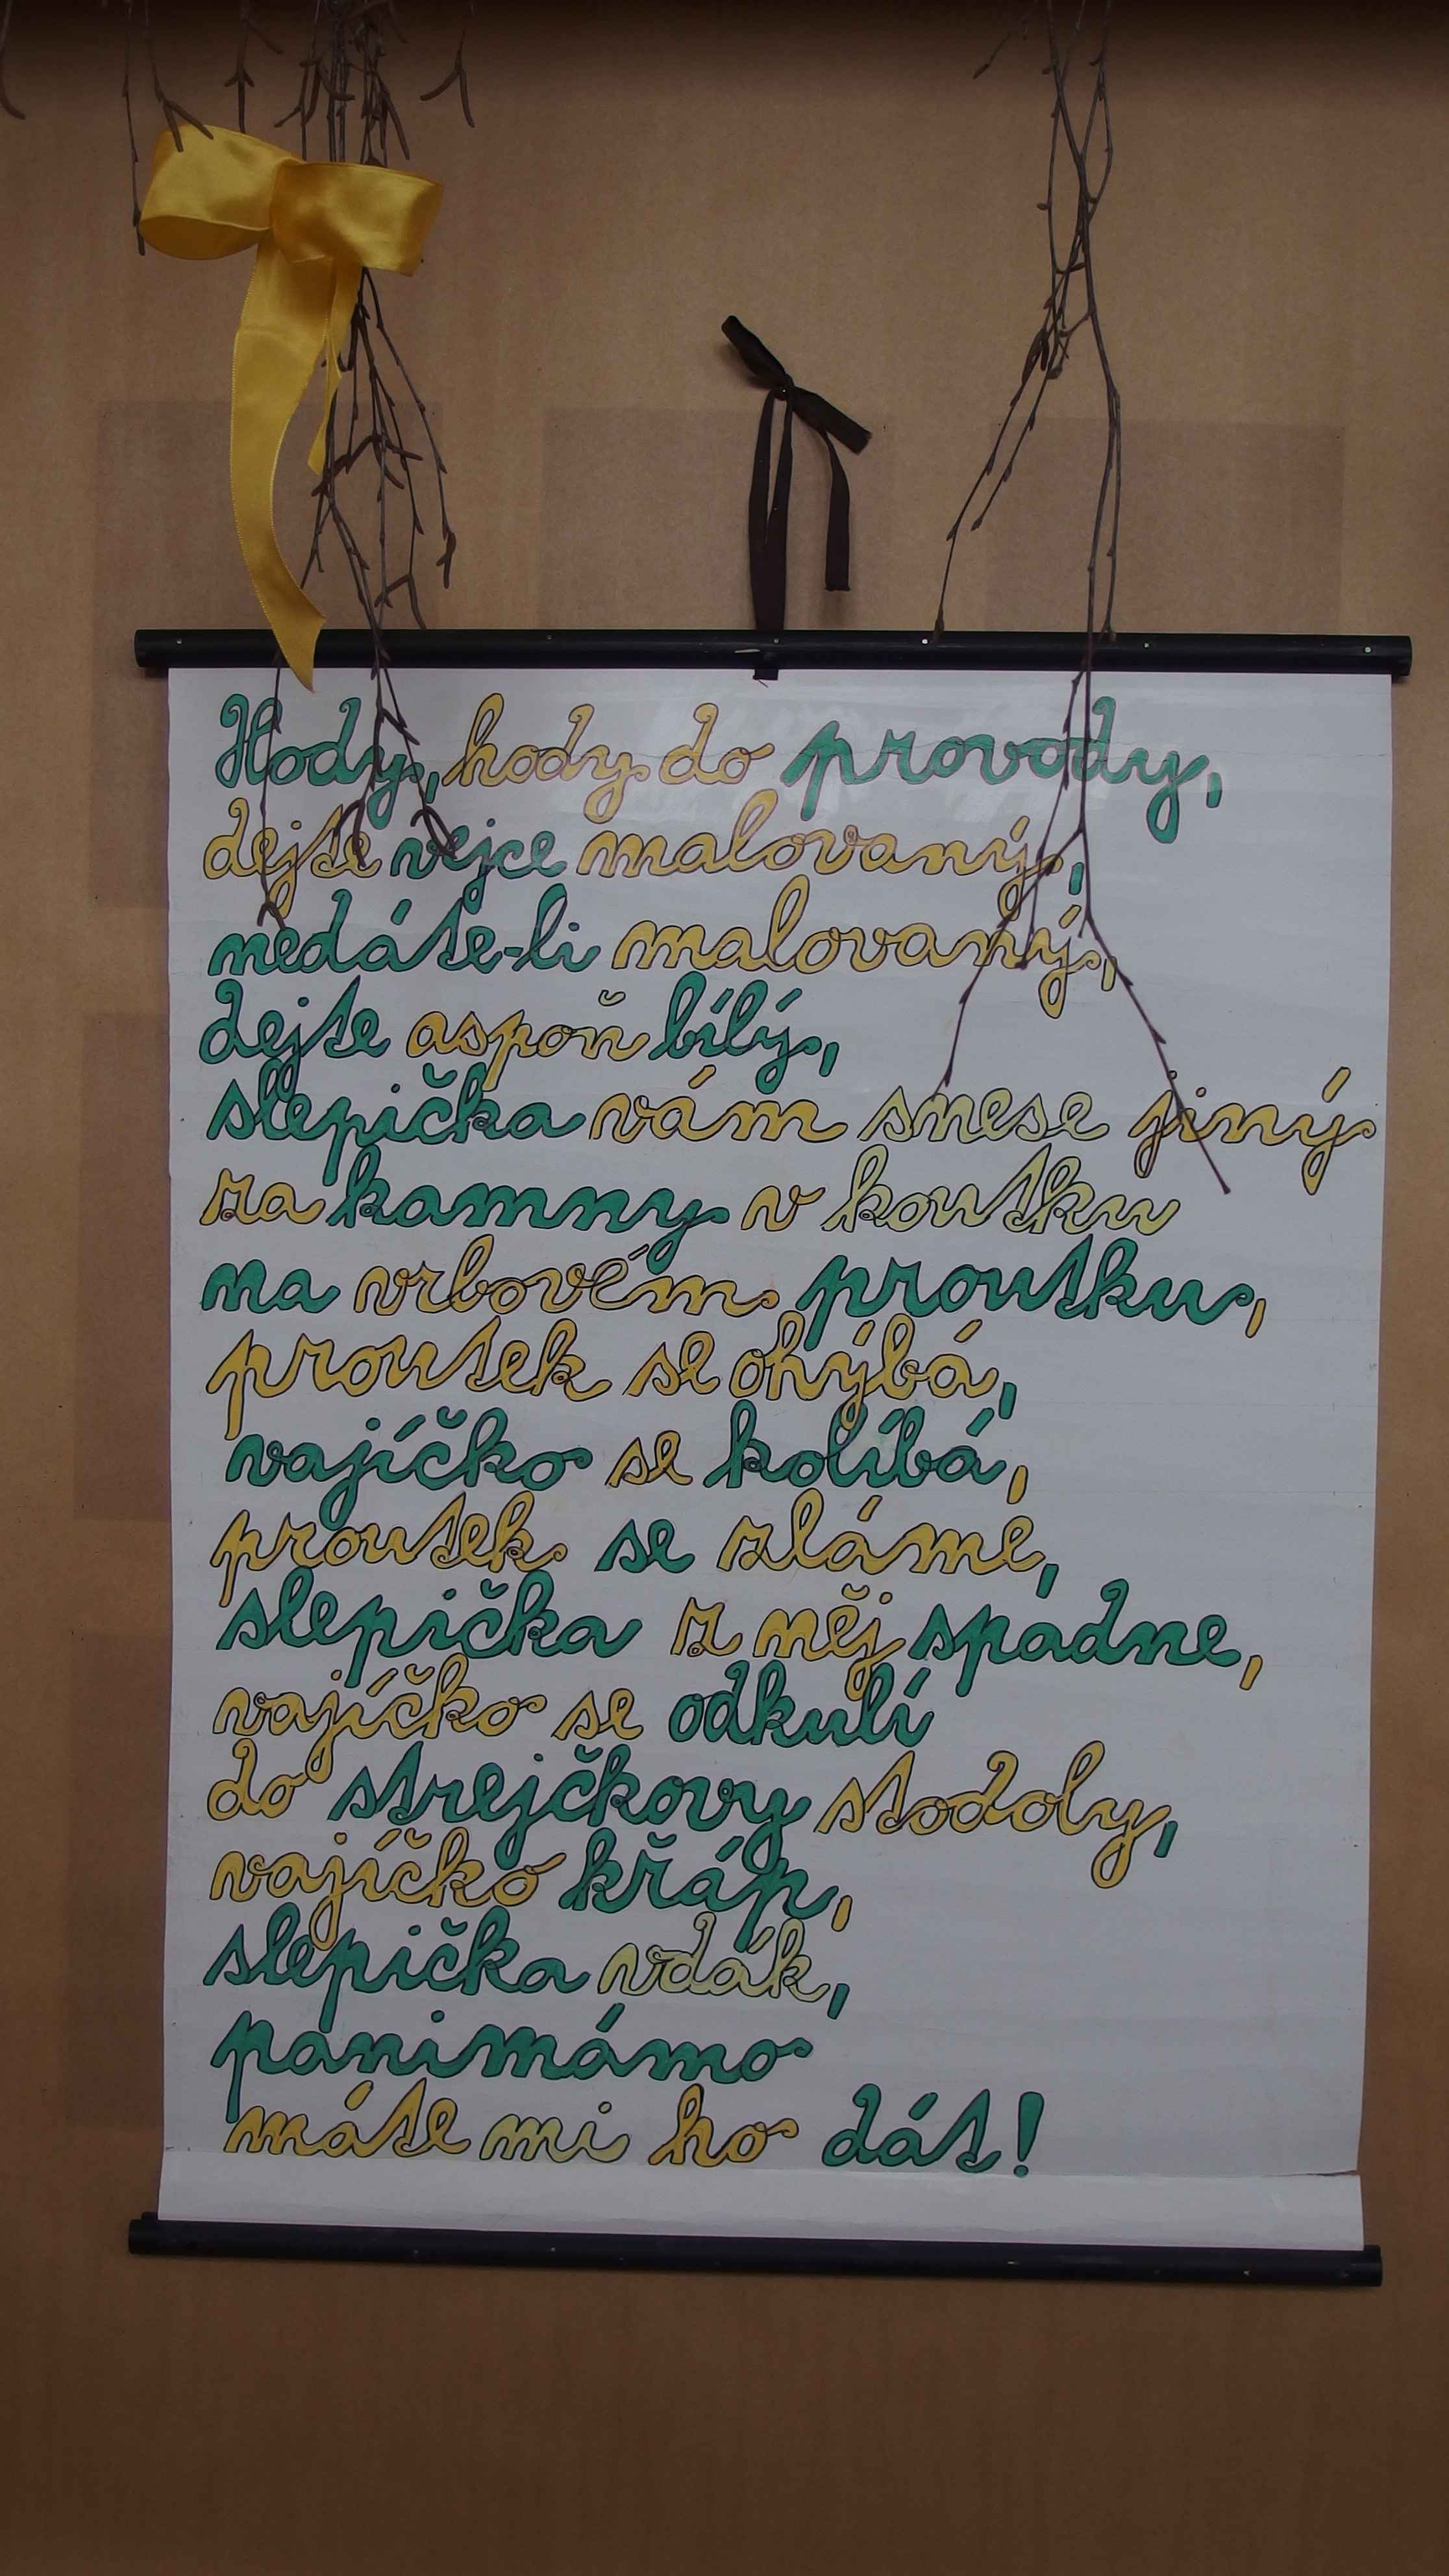 Hody, hody do provody,
dejte vejce malovaný,
nedáte-li malovaný,
dejte aspoň bílý,
slepička vám snese jiný
za kamny v koutku
na vrbovém proutku,
proutek se ohýbá,
vajíčko se kolíbá,
proutek se zláme,
slepička z něj spadne,
vajíčko se odkulí
do strejčkovy stodoly,
vajíčko křáp,
slepička vdák,
panimámo
máte mi ho dát!